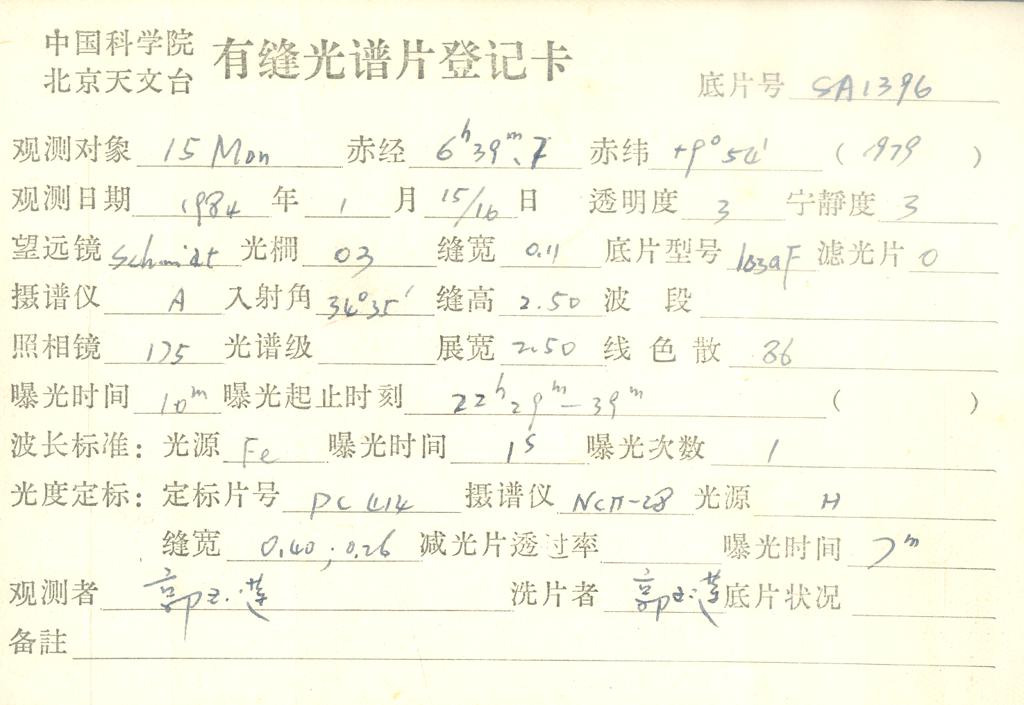 中国科学院
北京天文台
有缝光谱片登记卡
底片号 SA1396
观测对象 15 Mon 赤经 6ʰ39ᵐ.7 赤纬 +9°54′ ( 1979 )
观测日期 1984 年 1 月 15/16 日 透明度 3 宁静度 3
望远镜 Schmidt 光栅 03 缝宽 0.11 底片型号 103aF 滤光片 0
摄谱仪 A 入射角 34°35′ 缝高 2.50 波 段
照相镜 175 光谱级 展宽 2.50 线 色 散 86
曝光时间 10ᵐ 曝光起止时刻 22ʰ29ᵐ—39ᵐ ( )
波长标准: 光源 Fe 曝光时间 1ˢ 曝光次数 1
光度定标: 定标片号 PC 414 摄谱仪 NCΠ-28 光源 H
缝宽 0.40;0.26 减光片透过率 曝光时间 7ᵐ
观测者 郭玉莲 洗片者 郭玉莲 底片状况
备註